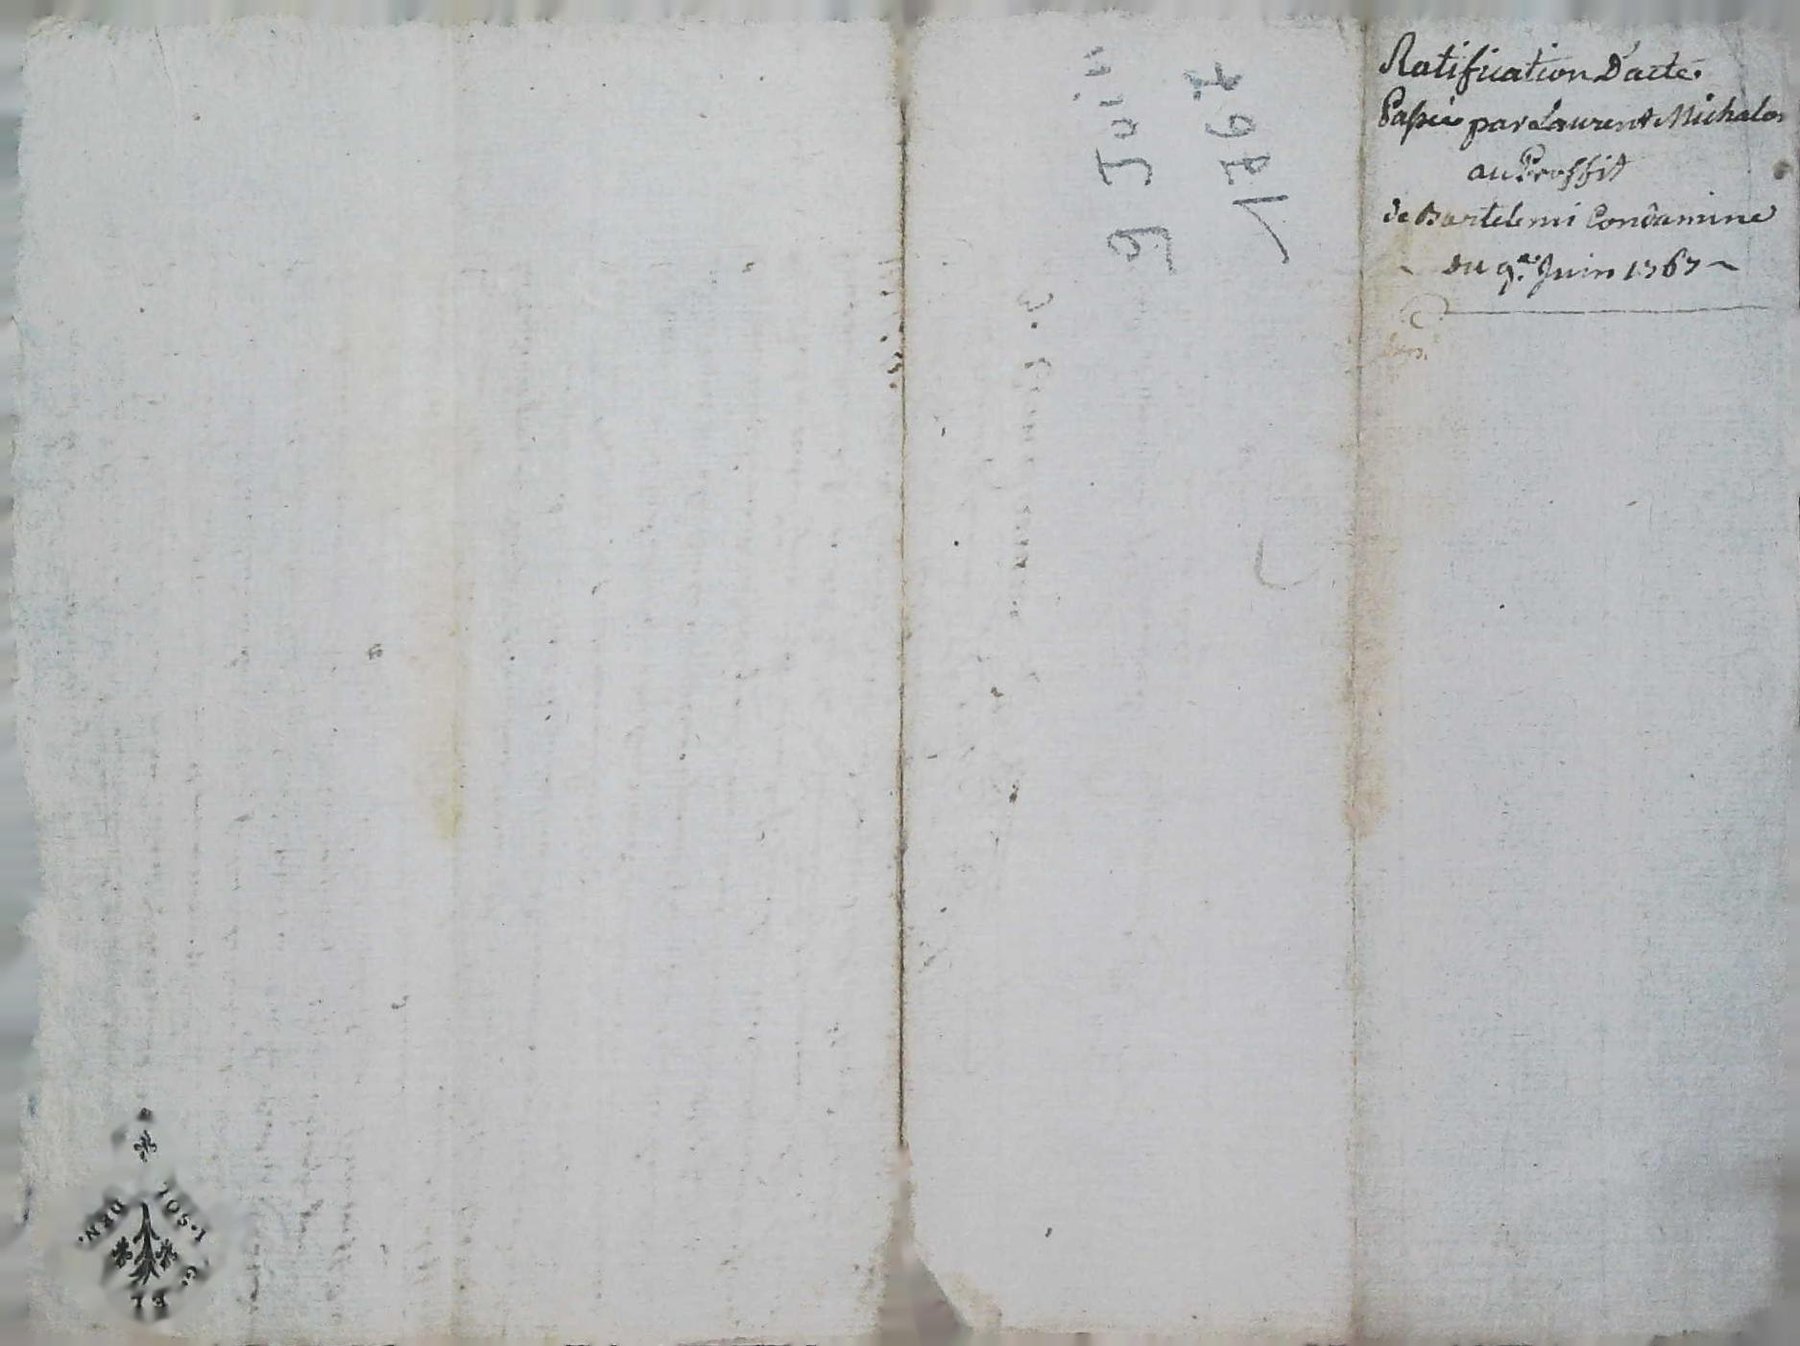 Ratification D'acte.
Passée par Laurent Michalon
au Proffit
de Bartelemi Condamine
du 9.e Juin 1767
9 Juin
1767
SOL
DEN.